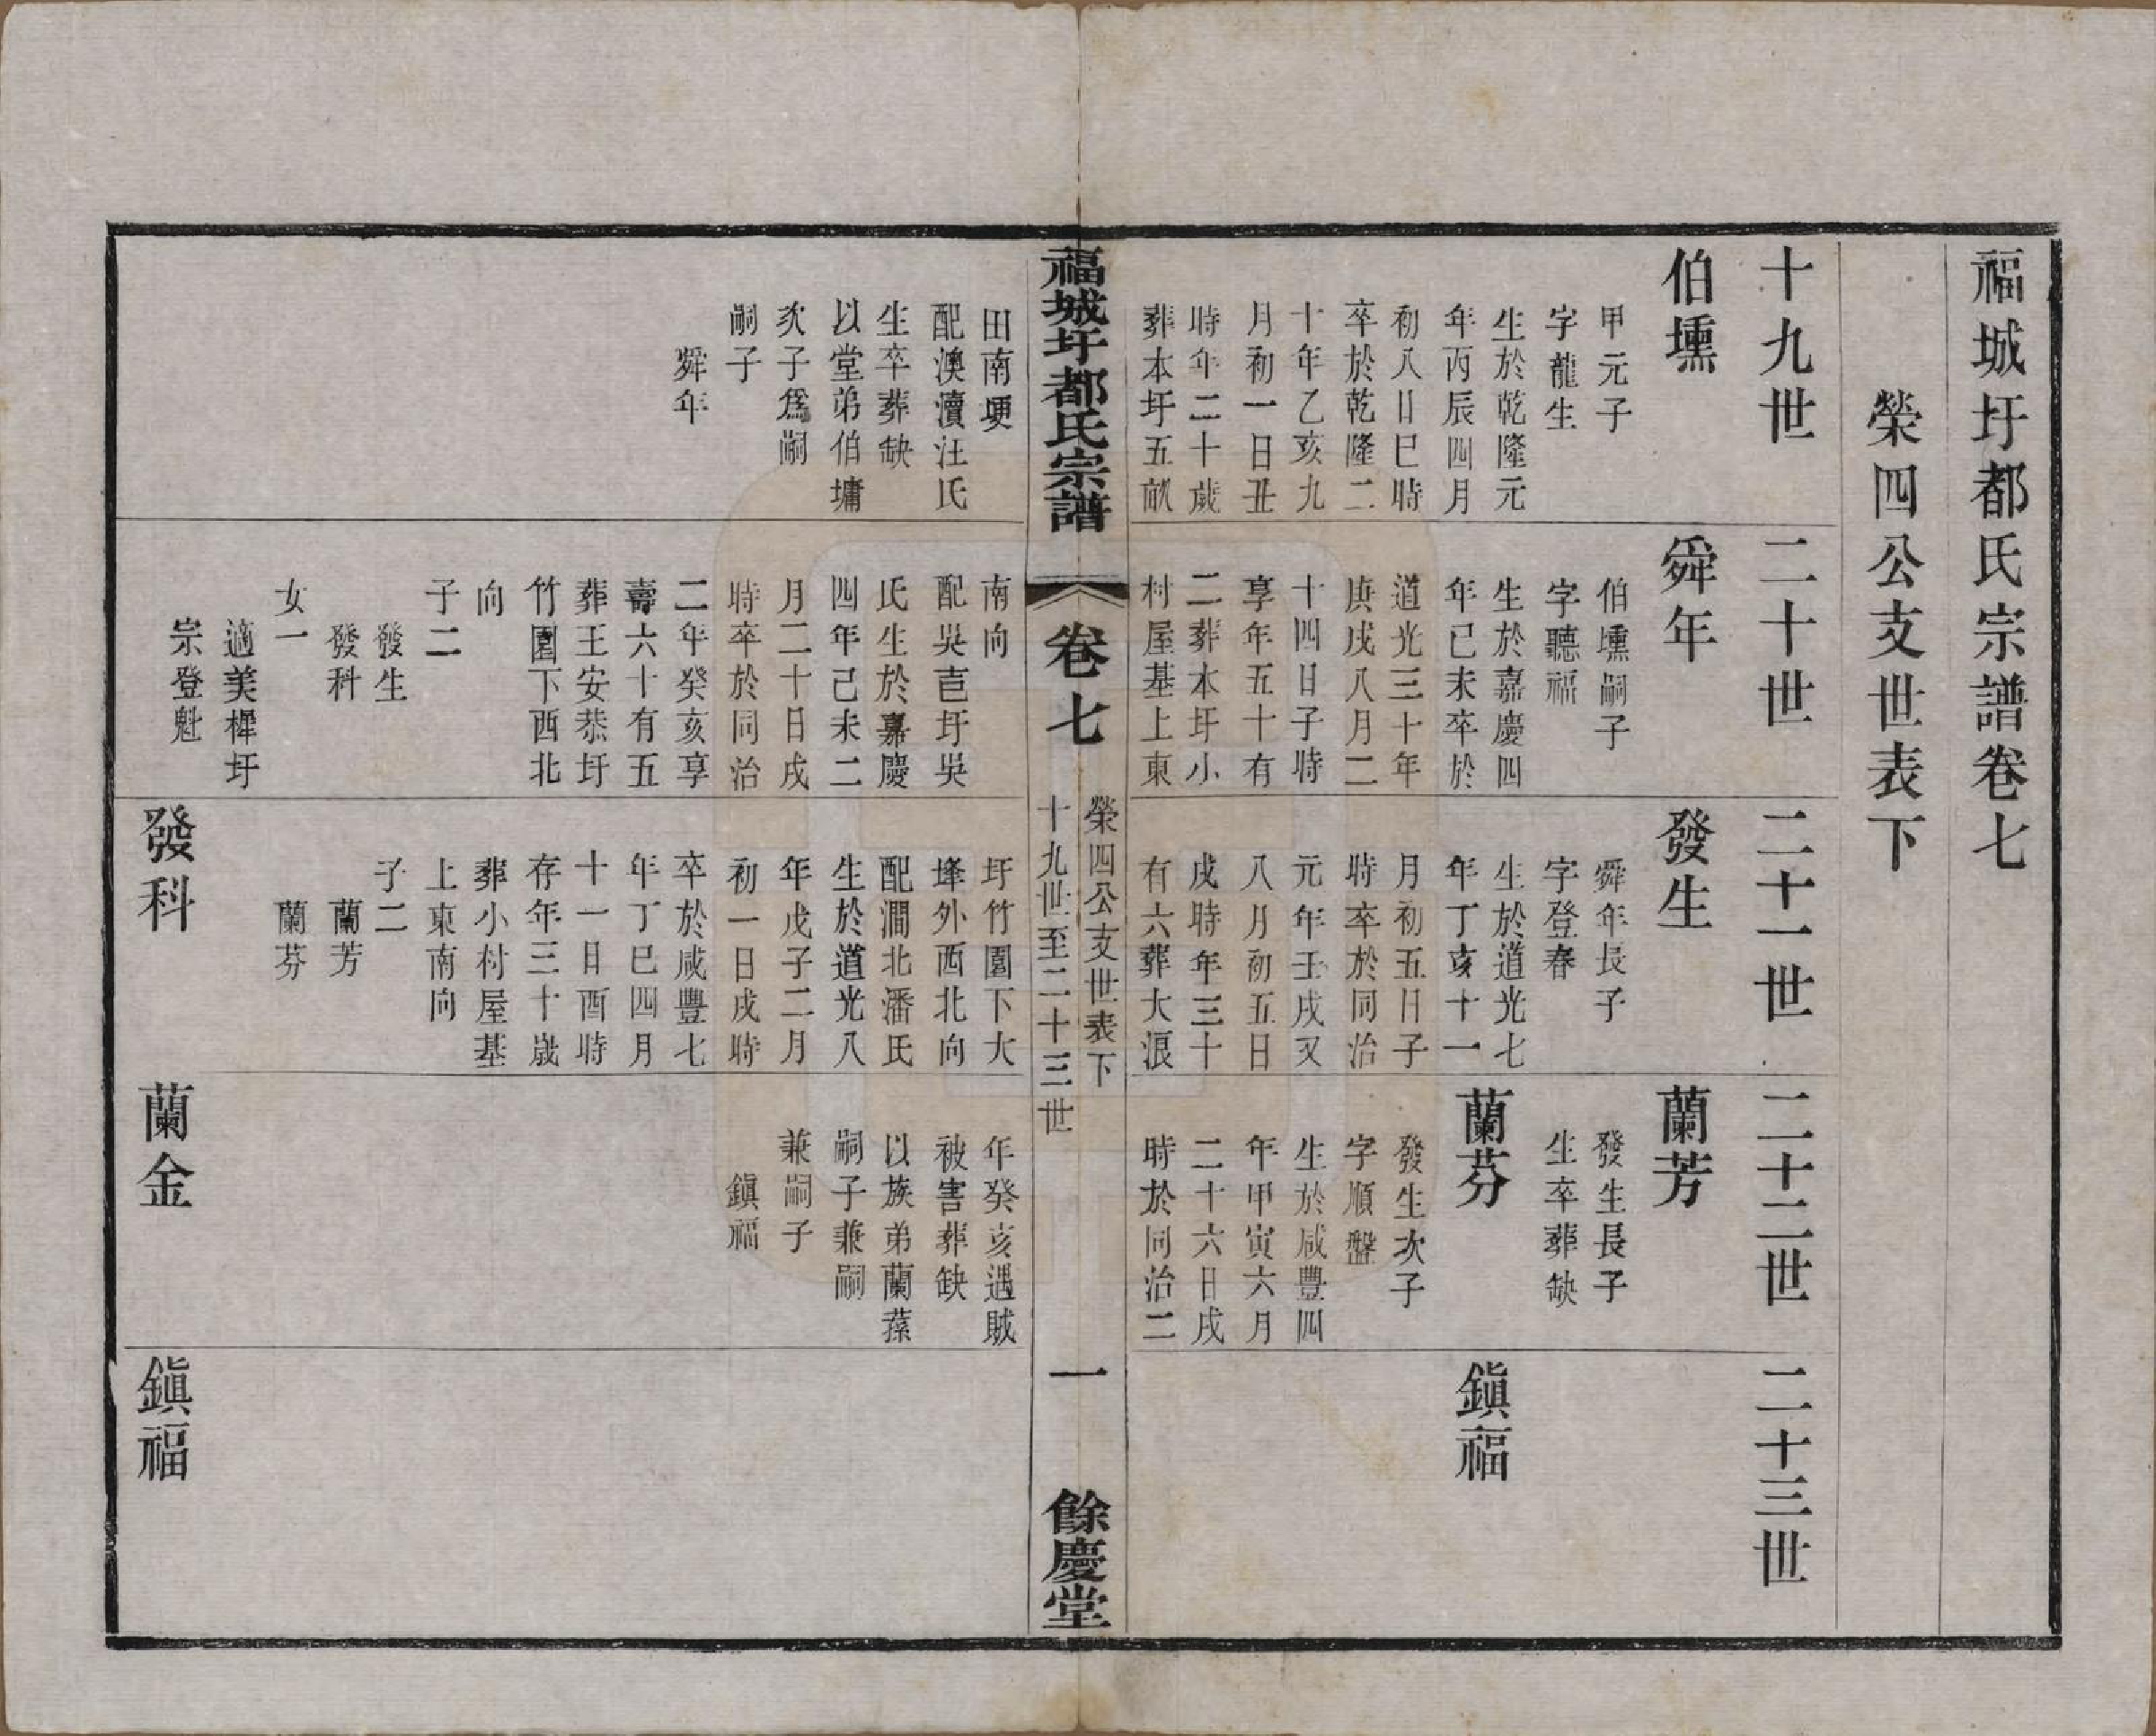 福城圩都氏宗譜卷七
榮四公支世表下
十九世
伯壎
甲元子
字龍生
生於乾隆元
年丙辰四月
初八日巳時
卒於乾隆二
十年乙亥九
月初一日丑
時年二十歲
葬本圩五畝
二十世
舜年
伯壎嗣子
字聽福
生於嘉慶四
年己未卒於
道光三十年
庚戌八月二
十四日子時
享年五十有
二葬本圩小
村屋基上東
二十一世
發生
舜年長子
字登春
生於道光七
年丁亥十一
月初五日子
時卒於同治
元年壬戌又
八月初五日
戌時年三十
有六葬大浪
二十二世
蘭芳
發生長子
生卒葬缺
蘭芬
發生次子
字順盤
生於咸豐四
年甲寅六月
二十六日戌
時於同治二
二十三世
鎭福
福城圩都氏宗譜
卷七
榮四公支世表下
十九世至二十三世
一
餘慶堂
田南埂
配澳瀆汪氏
生卒葬缺
以堂弟伯墉
次子爲嗣
嗣子
舜年
南向
配吳吉圩吳
氏生於嘉慶
四年己未二
月二十日戌
時卒於同治
二年癸亥享
壽六十有五
葬王安恭圩
竹園下西北
向
子二
發生
發科
女一
適美樨圩
宗登魁
圩竹園下大
埄外西北向
配澗北潘氏
生於道光八
年戊子二月
初一日戌時
卒於咸豐七
年丁巳四月
十一日酉時
存年三十歲
葬小村屋基
上東南向
子二
蘭芳
蘭芬
發科
年癸亥遇賊
被害葬缺
以族弟蘭葆
嗣子兼嗣
兼嗣子
鎭福
蘭金
鎭福